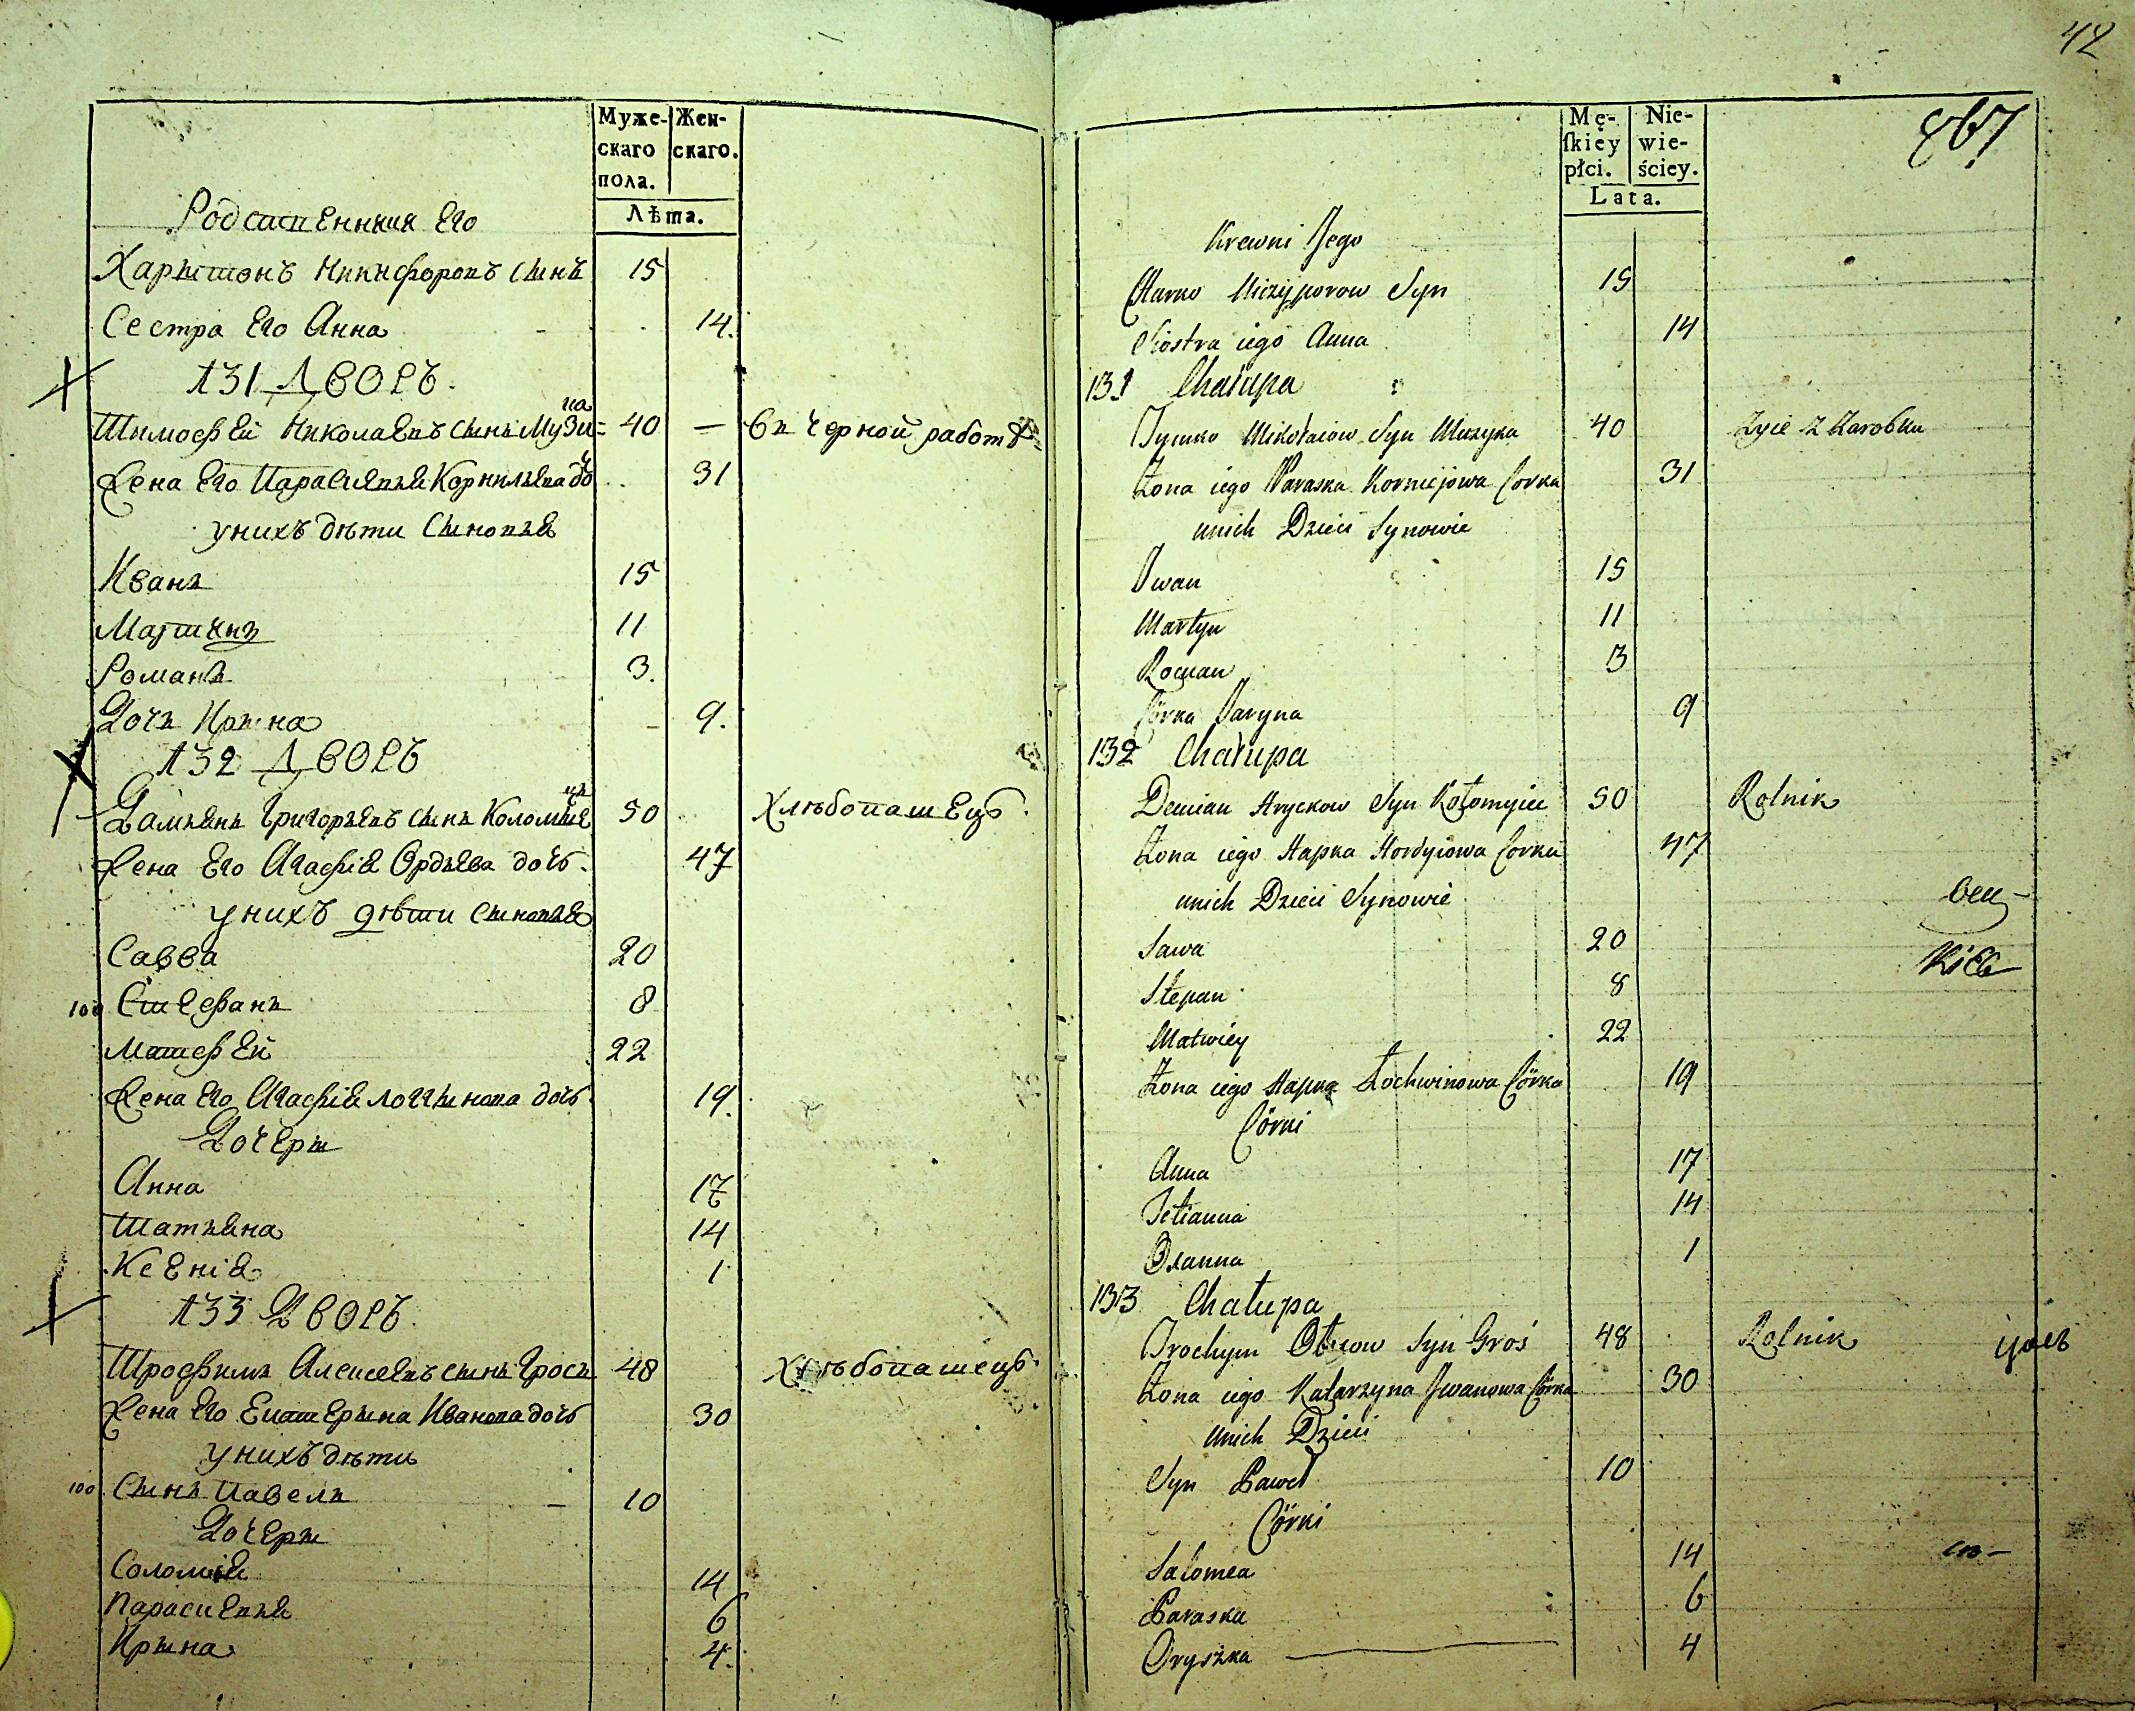 42
Муже- Жен-
скаго скаго.
пола.
Лѣта.
Родственники Его
Харитонъ Никифоровъ сынъ 15
Сестра Его Анна 14.
131 ДВОРЪ.
Тимофей Николаевъ сынъ Музи= 40 — Въ черной работѣ
ка
Жена Его Парасиевья Корнильева дочь 31
у нихъ дѣти Сыновья
Иванъ 15
Мартынъ 11
Романъ 3.
Дочь Ирина 9.
132 ДВОРЪ
Дамьянъ Григорьевъ сынъ Коломые 50 Хлѣбопашецъ.
цъ
Жена Его Агафія Ордѣева дочь. 47
у нихъ дѣти сыновья
Савва 20
100 Стефанъ 8
Матфей 22
Жена Его Агафія Логгинова дочь. 19.
Дочери
Анна 17
Татьяна 14
Ксенія 1
133 ДВОРЪ.
Трофимъ Алексеевъ сынъ Гросъ 48 Хлѣбопашецъ.
Жена Его Екатерина Иванова дочь 30
у нихъ дѣти
100 Сынъ Павелъ — 10
Дочери
Соломия 14
Парасиевья 6
Ирина 4.
Mę- Nie-
ſkiey wie-
płci. ściey.
Lata.
867
Krewni Jego
Harko Niczyporow Syn 15
Siostra iego Anna 14
131 Chałupa
Tymko Mikołaiow Syn Muzyka 40 Zyie z Zarobku
Zona iego Paraska Korniejowa Corka 31
unich Dzieci Synowie
Iwan 15
Martyn 11
Roman 3
Córka Jaryna 9
132 Chałupa
Demian Hryckow Syn Kołomyiec 50 Rolnik
Zona iego Hapka Hordyiowa Corka 47
unich Dzieci Synowie
Sawa 20
Stepan 8
Matwiey 22
Zona iego Hapka Łochwinowa Córka 19
Córki
Anna 17
Tetianna 14
Oxanna 1
133 Chałupa
Trochym Syn Gros 48 Rolnik
Zona iego Katarzyna Iwanowa Córka 30
unich Dzieci
Syn Paweł 10
Córki
Salomea 14
Paraska 6
Oryszka 4